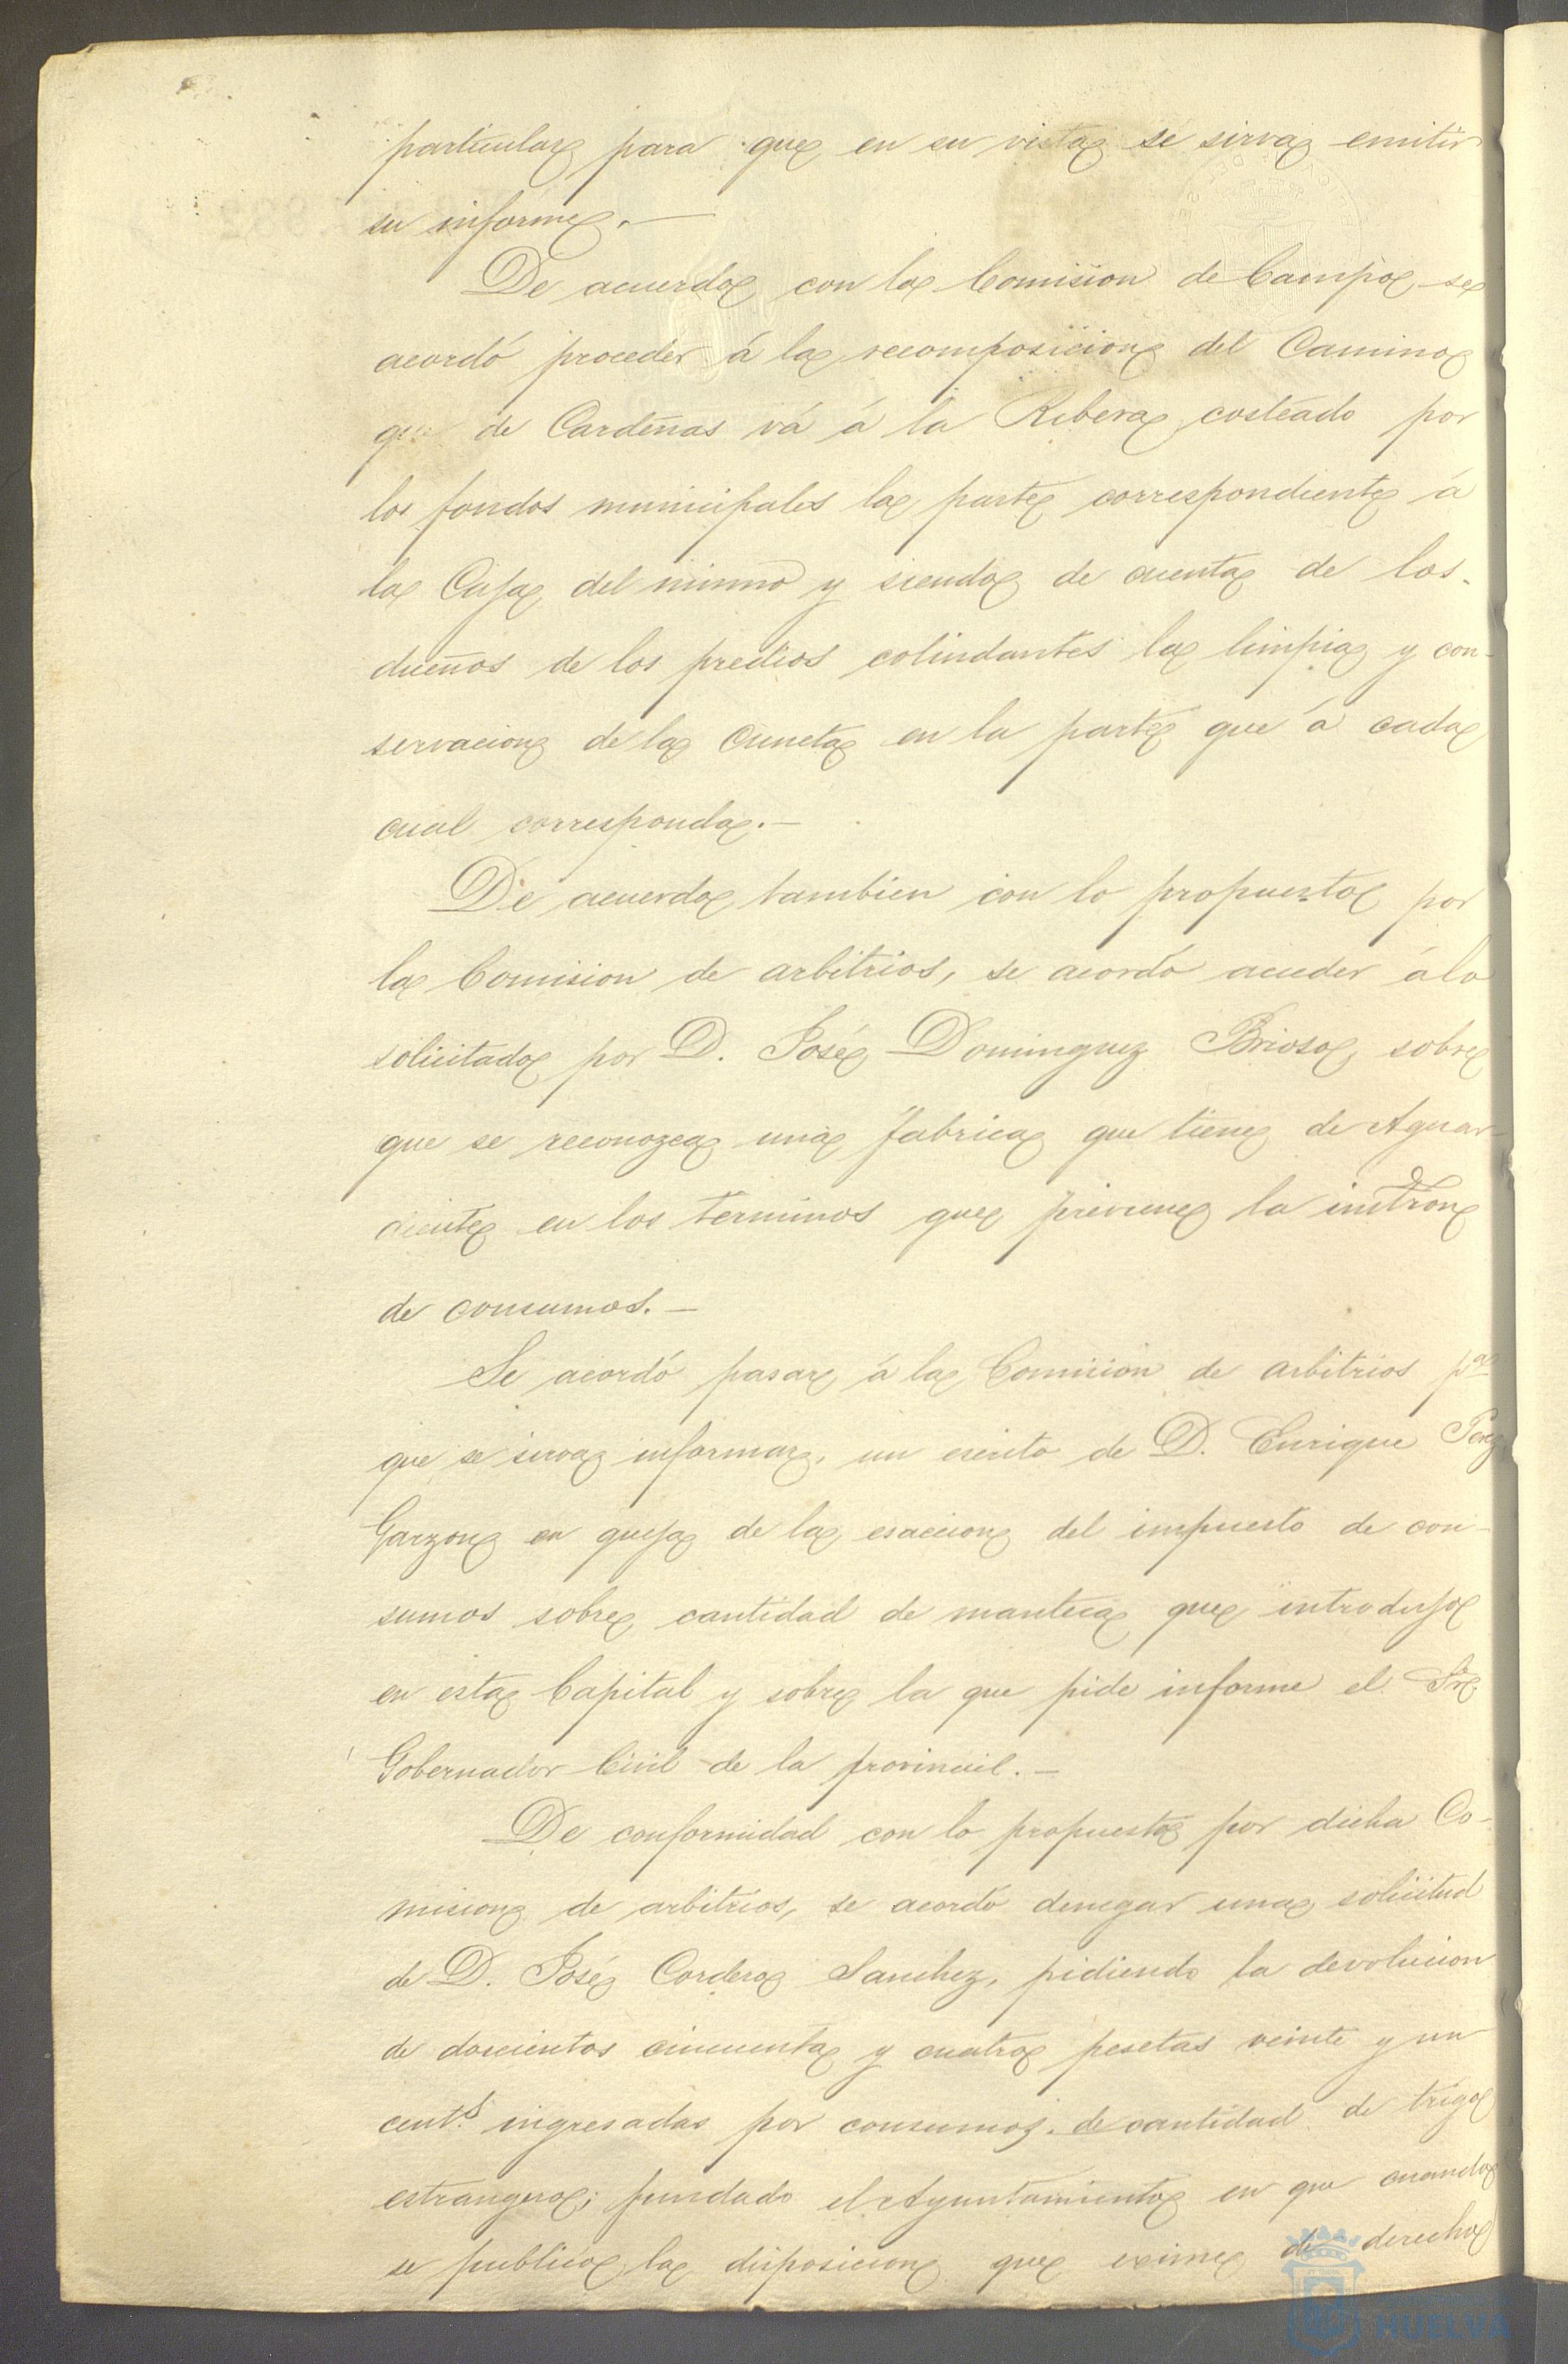 particular para que en su vista se sirva emitir
su informe.—
De acuerdo con la Comision de Campo se
acordó proceder á la recomposicion del Camino
que de Cardeñas vá á la Ribera costeado por
los fondos municipales la parte correspondiente á
la Caja del mismo y siendo de cuenta de los
dueños de los predios colindantes la limpia y con-
servacion de la Cuneta en la parte que á cada
cual corresponda.—
De acuerdo tambien con lo propuesto por
la Comision de arbitrios, se acordó acceder á lo
solicitado por D. José Dominguez Brioso, sobre
que se reconozca una fabrica que tiene de Aguar-
diente en los terminos que previene la instron
de consumos.—
Se acordó pasar á la Comision de arbitrios pa
que se sirva informar, un escrito de D. Enrique Perez
Garzon en queja de la esaccion del impuesto de con-
sumos sobre cantidad de manteca que introdujo
en esta Capital y sobre la que pide informe el Sr
Gobernador Civil de la provincil.—
De conformidad con lo propuesto por dicha Co-
mision de arbitrios, se acordó denegar una solicitud
de D. José Cordero Sanchez, pidiendo la devolucion
de doscientos cincuenta y cuatro pesetas veinte y un
cents. ingresadas por consumos de cantidad de trigo
estrangero; fundado el Ayuntamiento en que cuando
se publico la disposicion que exime de derecho
HUELVA